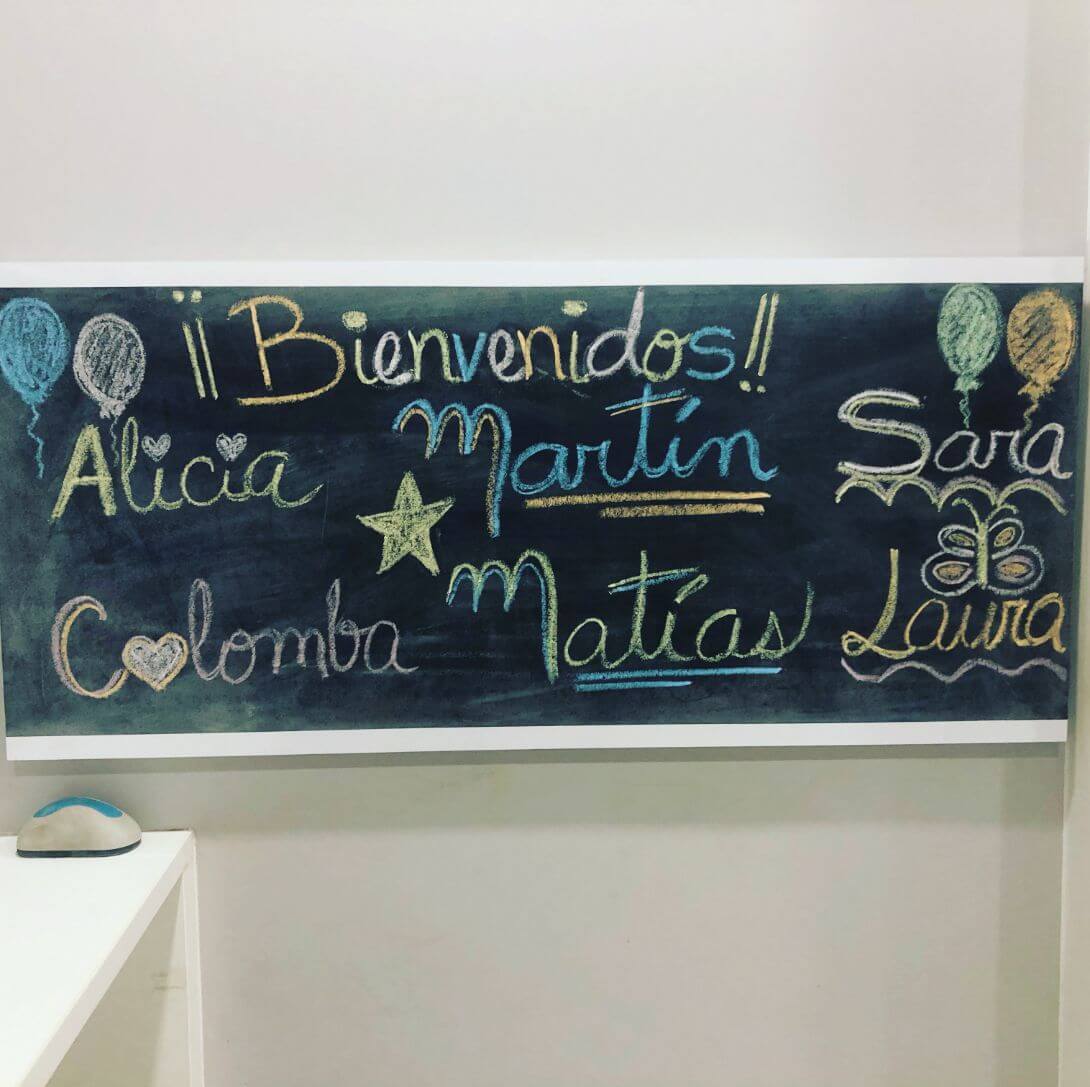 ¡¡Bienvenidos!!
Alicia Martín Sara
Colomba Matías Laura